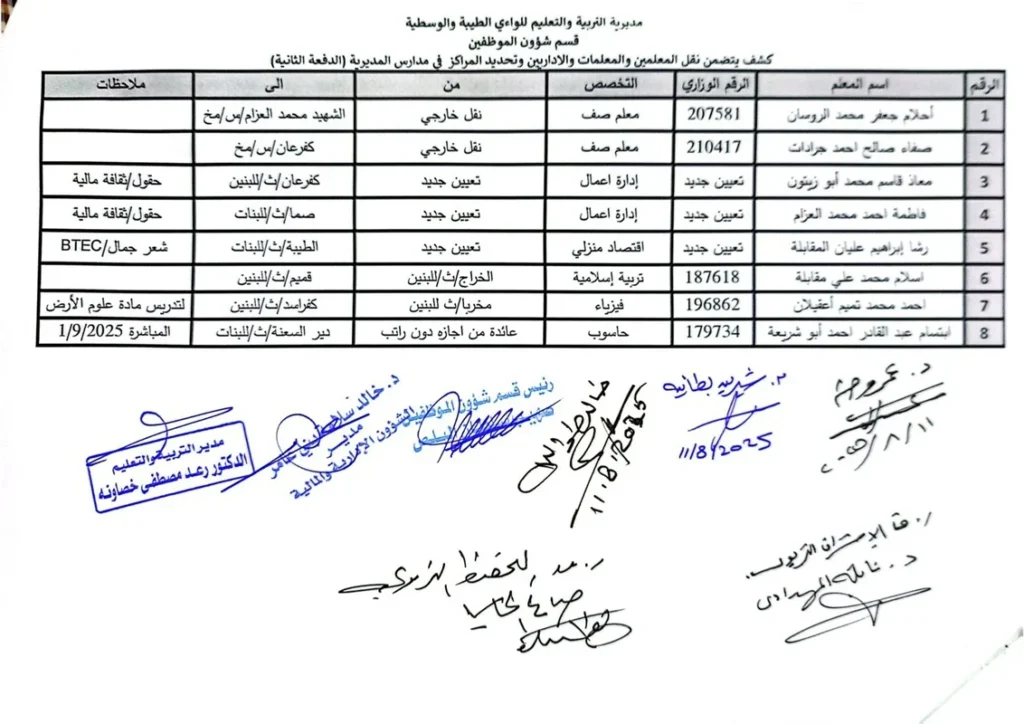 مديرية التربية والتعليم للواءي الطيبة والوسطية
قسم شؤون الموظفين
كشف يتضمن نقل المعلمين والمعلمات والاداريين وتحديد المراكز في مدارس المديرية (الدفعة الثانية)
الرقم اسم المعلم الرقم الوزاري التخصص من الى ملاحظات
1 أحلام جعفر محمد الروسان 207581 معلم صف نقل خارجي الشهيد محمد العزام/س/مخ
2 صفاء صالح احمد جرادات 210417 معلم صف نقل خارجي كفرعان/س/مخ
3 معاذ قاسم محمد أبو زيتون تعيين جديد إدارة اعمال تعيين جديد كفرعان/ث/للبنين حقول/ثقافة مالية
4 فاطمة احمد محمد العزام تعيين جديد إدارة اعمال تعيين جديد صما/ث/للبنات حقول/ثقافة مالية
5 رشا إبراهيم عليان المقابلة تعيين جديد اقتصاد منزلي تعيين جديد الطيبة/ث/للبنات شعر جمال/BTEC
6 اسلام محمد علي مقابلة 187618 تربية إسلامية الخراج/ث/للبنين قميم/ث/للبنين
7 احمد محمد تميم أعقيلان 196862 فيزياء مخربا/ث للبنين كفراسد/ث/للبنين لتدريس مادة علوم الأرض
8 ابتسام عبد القادر احمد أبو شريعة 179734 حاسوب عائدة من اجازه دون راتب دير السعنة/ث/للبنات المباشرة 1/9/2025
د. عمرو
٢٠٢٥/٨/١١
بطاينه
11/8/2025
11.8.2025
رئيس قسم شؤون الموظفين
د. خالد
مدير الشؤون الإدارية والمالية
مدير التربية والتعليم
الدكتور رعد مصطفى خصاونه
الإشراف التربوي
د.